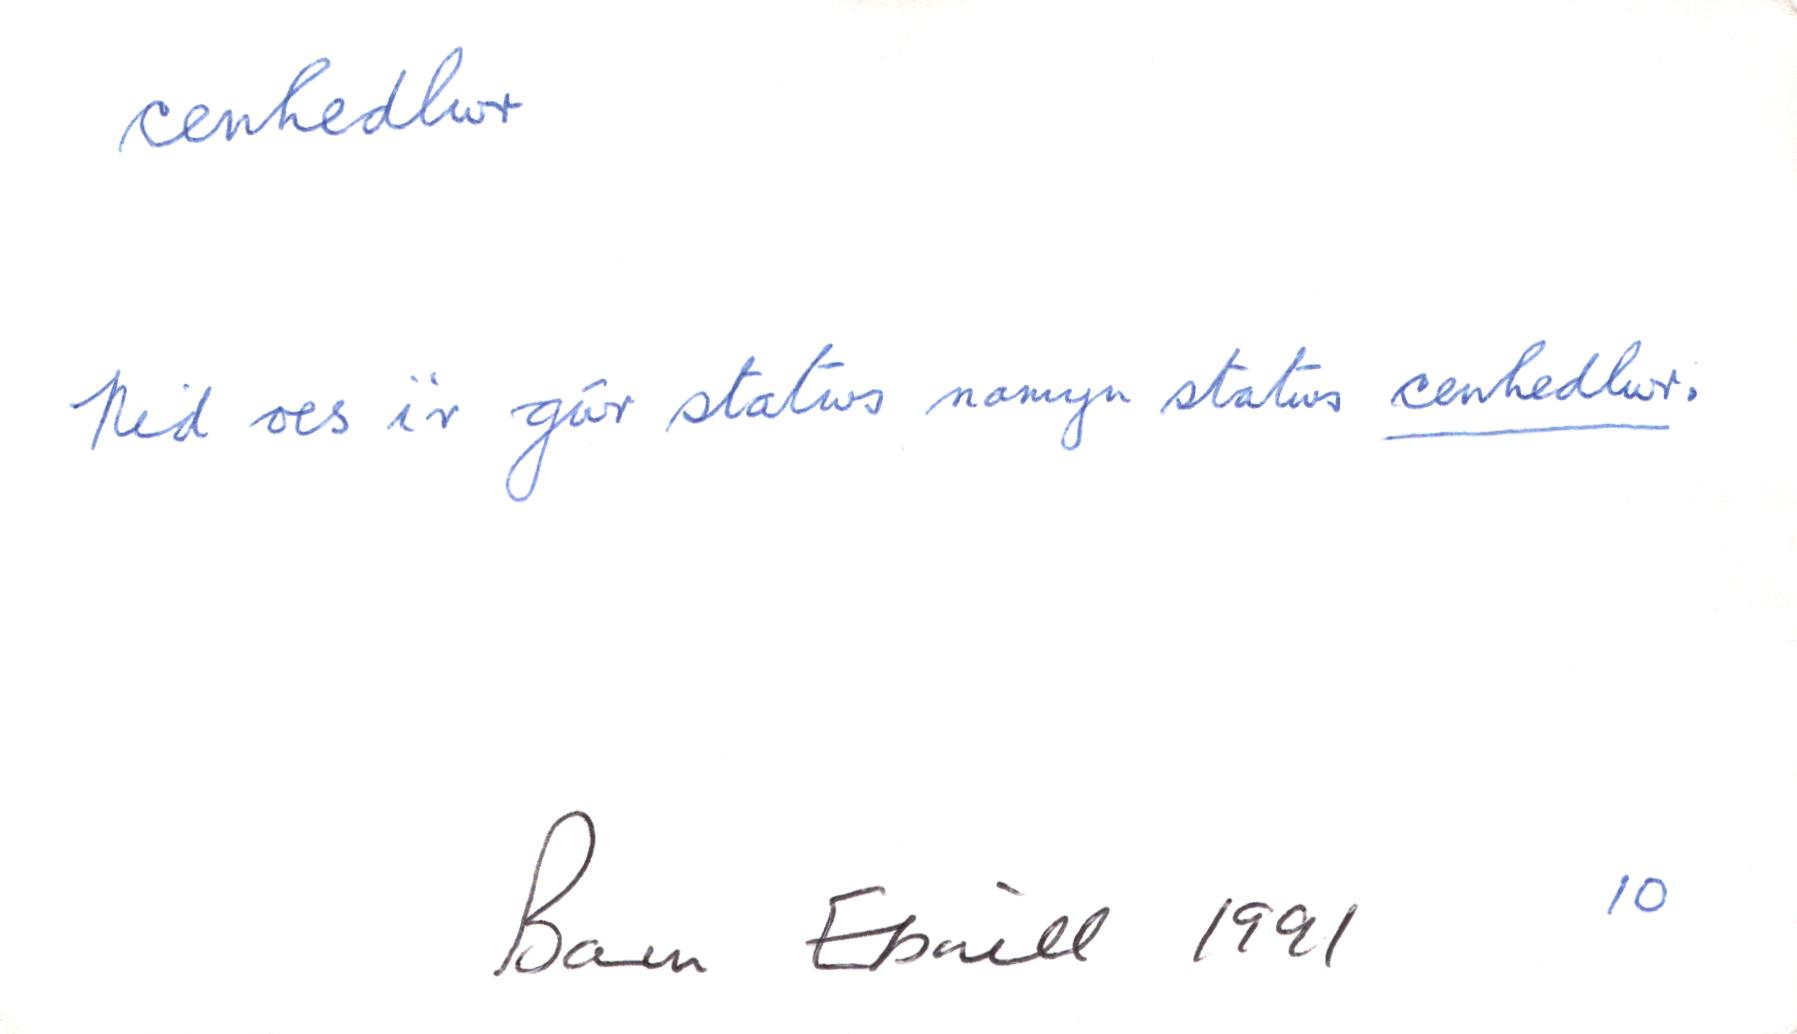 cenhedlwr
Nid oes i'r gŵr statws namyn statws cenhedlwr.
Barn Ebrill 1991
10